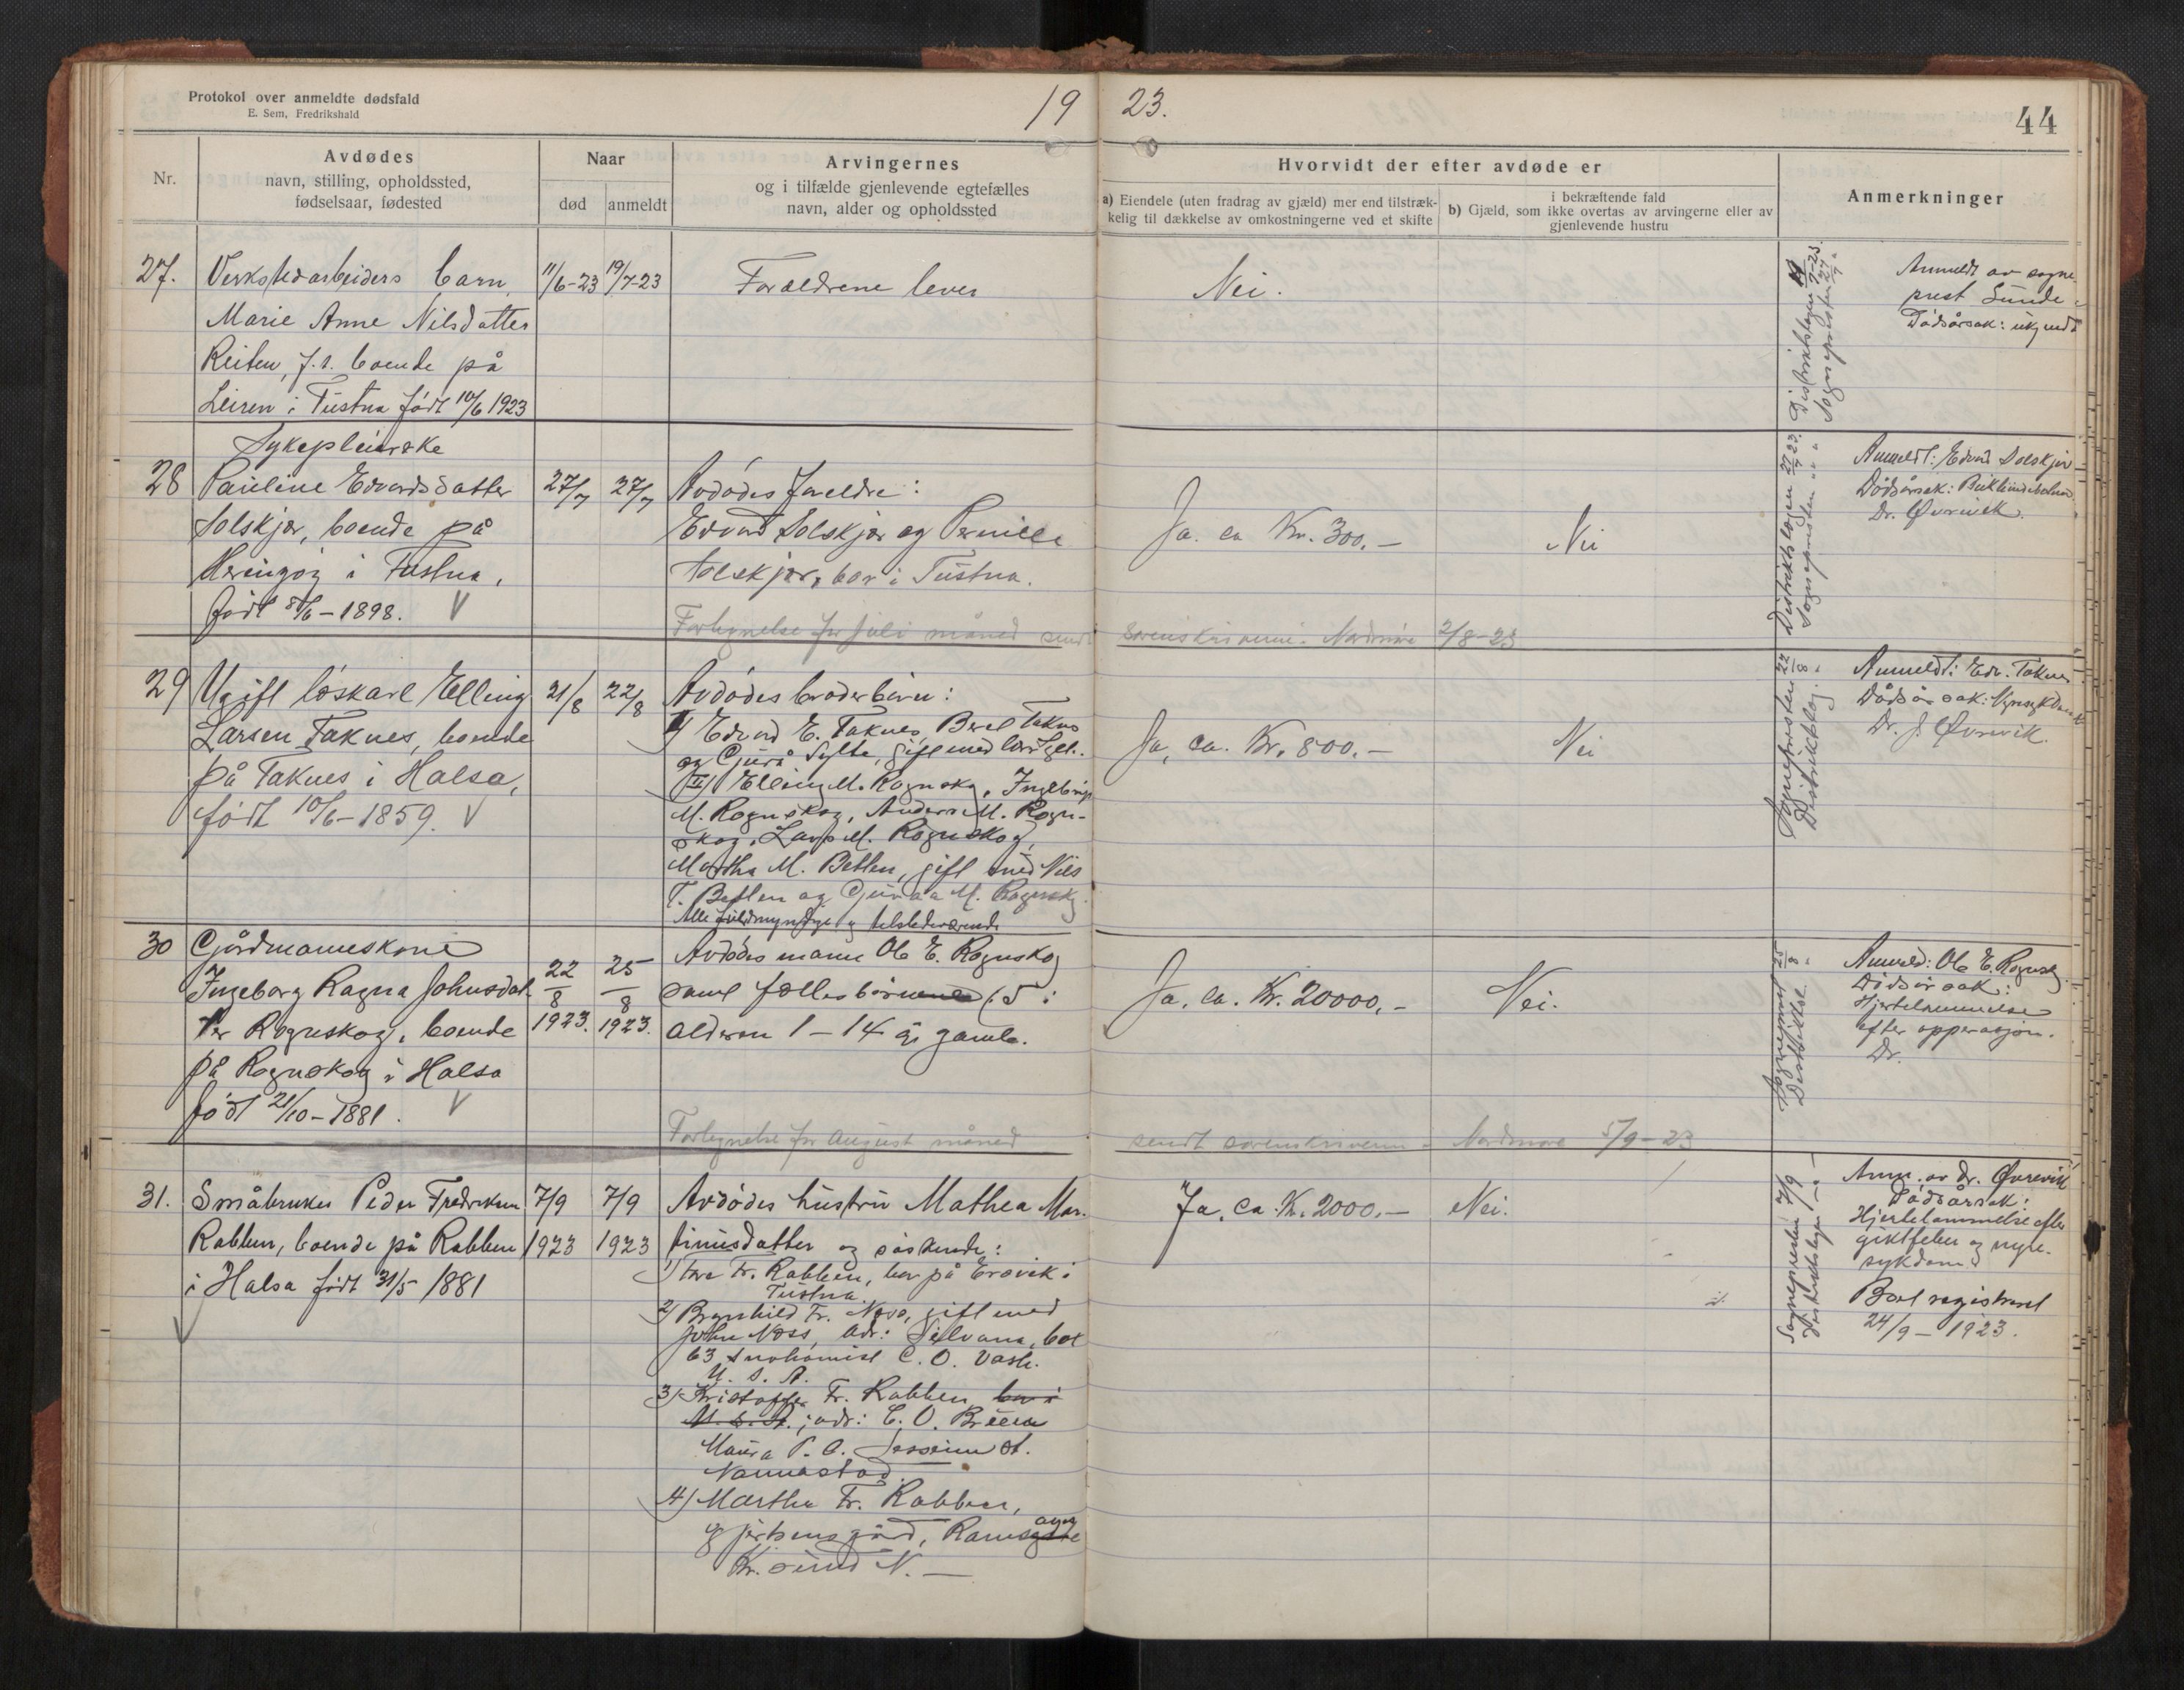 Protokol over anmeldte dødsfald
E. Sem, Fredrikshald
19 23.
44
Nr.
Avdødes
navn, stilling, opholdssted,
fødselsaar, fødested
Naar
død
anmeldt
Arvingernes
og i tilfælde gjenlevende egtefælles
navn, alder og opholdssted
Hvorvidt der efter avdøde er
a) Eiendele (uten fradrag av gjæld) mer end tilstræk-
kelig til dækkelse av omkostningerne ved et skifte
i bekræftende fald
b) Gjæld, som ikke overtas av arvingerne eller av
gjenlevende hustru
Anmerkninger
27.
Verkstedarbeiders barn
Marie Anne Nilsdatter
Reiten, f. t. boende på
Leiren i Tustna født 10/6 1923
11/6-23
19/7-23
Forældrene lever
Nei.
Distriktslægen 19/7-23.
Sognepresten 27/7 "
Anmeldt av sogne-
prest Sunde.
Dødsårsak: ukjendt
28
Sykepleierske
Pauline Edvardsdatter
Solskjær, boende på
i Tustna,
født 8/6-1898. V
27/7
27/7
Avdødes foreldre:
Edvard Solskjær og Pernille
Solskjær, bor i Tustna.
Ja. ca Kr. 300.-
Nei
Distriktslægen 27/7 23.
Sognepresten " " "
Anmeldt: Edvard Solskjær
Dødsårsak:
Dr. Øvrevik.
Fortegnelse for juli måned sendt sorenskriveren i Nordmøre 2/8-23
29
Ugift løskarl Elling
Larsen Taknes, boende
på Taknes i Halsa,
født 10/6-1859. V
21/8
22/8
Avdødes broderbørn:
I) Edvard E. Taknes, Beret Taknes
og Gjurå Sylte, gift med
II) Elling M. Rognskog, Ingebrigt
M. Rognskog, Anders M. Rogn-
skog, Lars M. Rognskog,
Martha M. Betten, gift med Nils
T. Betten og Gjuraa M. Rognskog.
Alle fuldmyndige og tilstedeværende
Ja, ca. Kr. 800.-
Nei
Sognepresten 22/8
Distriktslæg. "
Anmeldt: Edv. Taknes
Dødsårsak: Nyresykdom
Dr. J. Øvrevik.
30
Gårdmannskone
Ingeborg Ragna Johnsdat-
ter Rognskog, boende
på Rognskog i Halsa
født 21/10-1881. V
22/8 1923.
25/8 1923.
Avdødes mann Ole E. Rognskog
samt fællesbørnene (5 i
alderen 1-14 år gamle.
Ja, ca. Kr. 20000.-
Nei.
Sogneprest 25/8
Distriktsl. "
Anmeld: Ole E. Rognskog
Dødsårsak:
Hjertelammelse
efter opperasjon.
Dr.
Fortegnelse for august måned sendt sorenskriveren i Nordmøre 5/9-23
31.
Småbruker Peder Fredriksen
Rabben, boende på Rabben
i Halsa født 31/5 1881
7/9 1923
7/9 1923
Avdødes hustru Mathea Mar-
tinusdatter og søskende:
1) Tore Fr. Rabben, bor på Ersvik i
Tustna.
2) Brynhild Fr. Næss, gift med
John Næss, adr: Silvana, box
63 Snohomish C. O. Vash.
U. S. A.
3) Kristoffer Fr. Rabben bor i
U. S. A.; adr: C. O.
Maura P. A. Jessheim st.
Nannestad.
4) Martha Fr. Rabben,
Kr.sund N. —
Ja, ca. Kr. 2000.-
Nei.
Sognepresten 7/9
Distriktslægen
Anm. av Dr. Øvrevik
Dødsårsak:
Hjertelammelse efter
giktfeber og nyre-
sykdom
Boet registreret
24/9-1923.